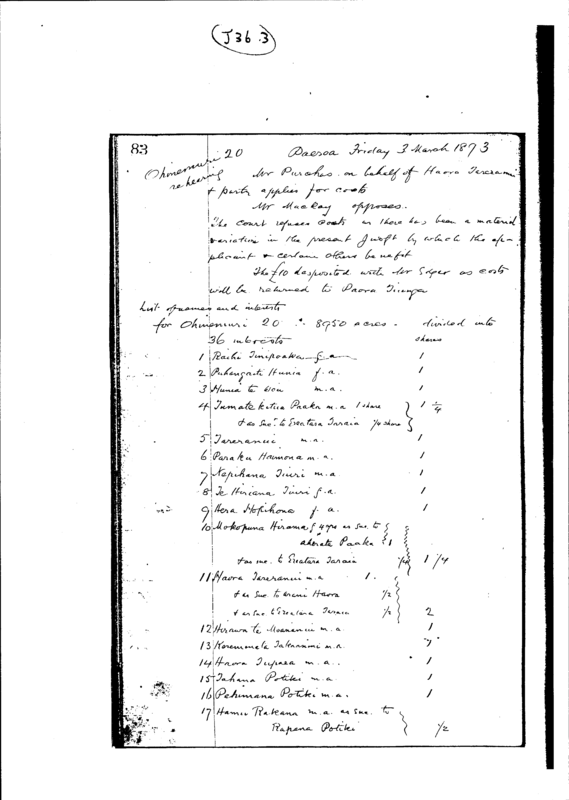 J36.3
83
Ohinemuri 20 Paeroa Friday 3 March 1893
rehearing
Mr Purchas on behalf of Haora Tareranui
+ party applies for costs
Mr Mackay opposes.
The court refuses costs as there has been a material
variation in the present Judgt by which the ap-
plicant + certain others benefit
The £10 desposited with Mr as costs
will be returned to Paora Tinga
List of names and interests
for Ohinemuri 20 8950 acres. divided into
36 interests shares
1 f. a 1
2 Hunia f. a. 1
3 Hunia te m. a. 1
4 Paaka m. a 1 share 1 1/4
+ as suc. to Eraatara Taraia 1/4 share
5 Tareranui m. a. 1
6 Paraku Haumona m. a. 1
7 Nepihana Tiuri m. a 1
8 Te Hiriana Tiuri f. a. 1
9 Hera f. a. 1
10 Mokopuna Hirama f 4 yrs as suc. to
Paaka 1
+ as suc. to Eraatara Taraia 1/4 1 1/4
11 Haora Tareranui m. a 1.
+ as suc. to Haora 1/2
+ as suc. to Eraatara Taraia 1/2 2
12 Hirawa te Moananui m. a 1
13 m. a.
14 Haora Tupaea m. a. 1
15 Tahana Potiki m. a. 1
16 Pehimana Potiki m. a. 1
17 Hamu m. a. as suc. to
Rapana Potiki 1/2